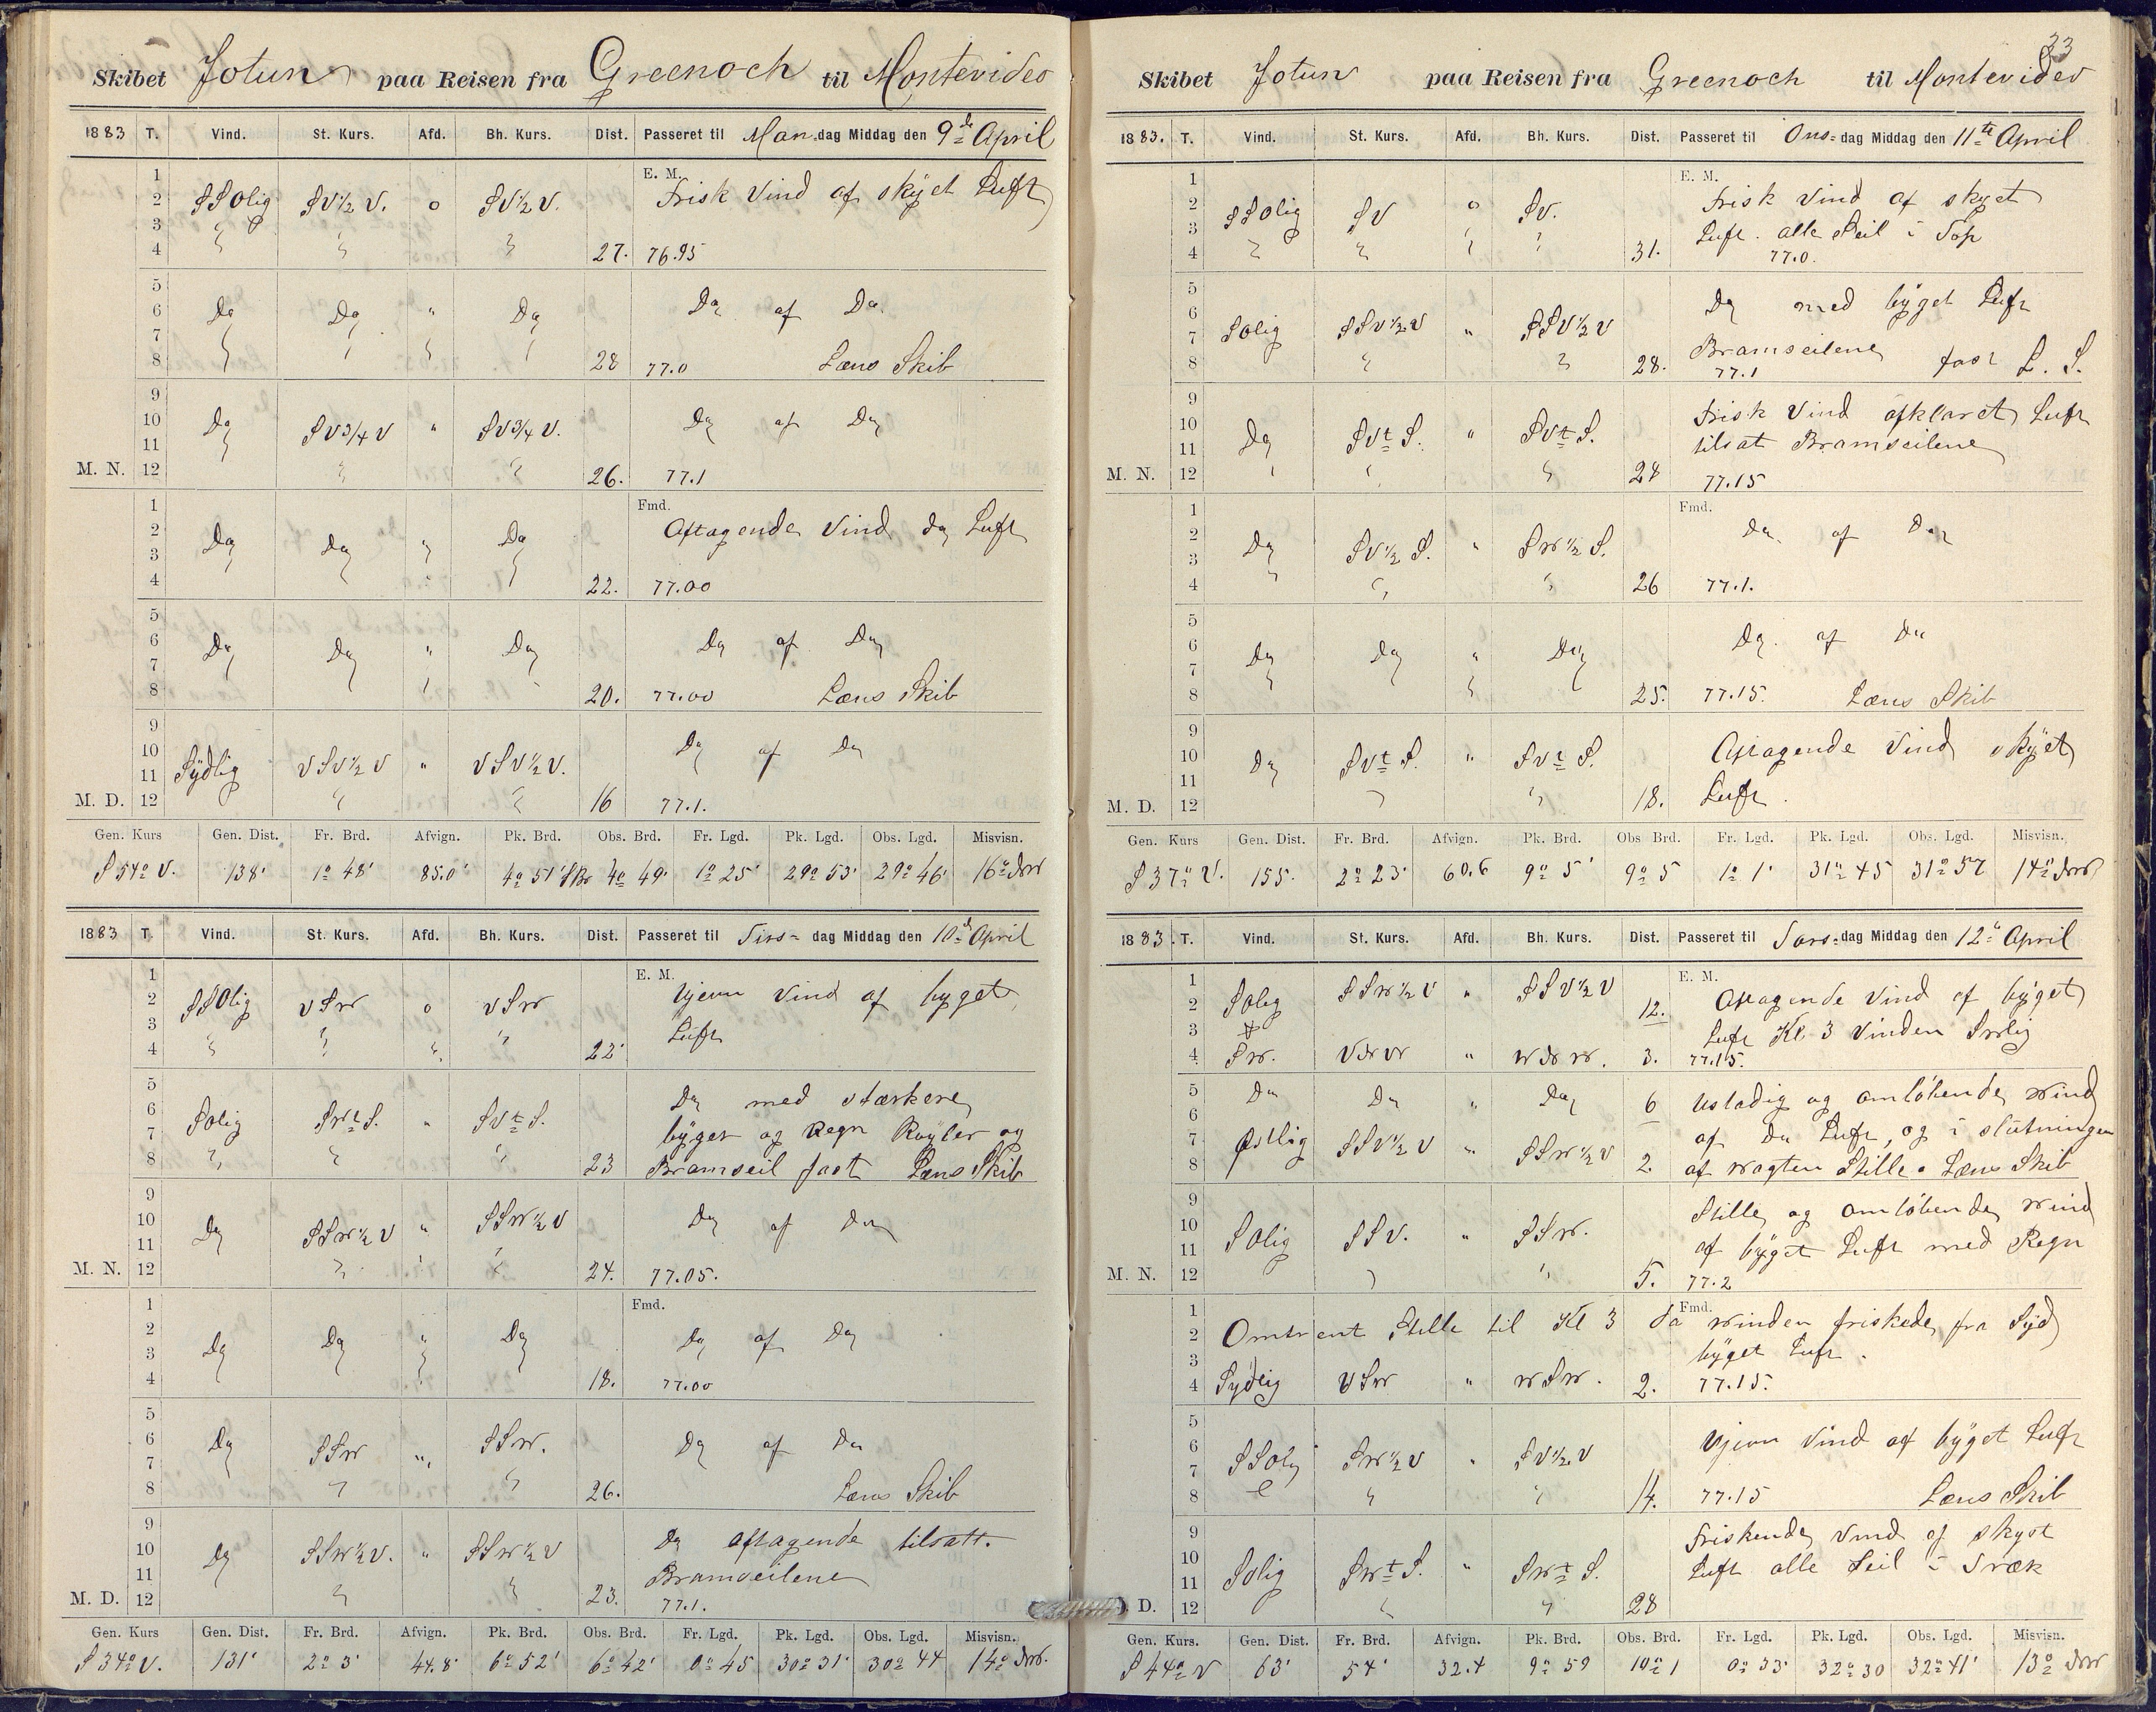 Skibet Jotun paa Reisen fra Greenoch til Montevideo
1883 T. Vind. St. Kurs. Afd. Bh. Kurs. Dist. Passeret til Man-dag Middag den 9de April
1 E. M.
2 SSOlig SV½V. o SV½V. Frisk Vind af skyet Luft
3
4 27. 76.95
5
6 Do Do " Do Do af Do
7
8 28 77.0 Læns Skib
9
10 Do SV¾V " SV¾V. Do af Do
11
M. N. 12 26. 77.1
1 Fmd.
2 Do Do " Do Aftagende Vind do Luft
3
4 22. 77.00
5
6 Do Do " Do Do af Do
7
8 20. 77.00 Læns Skib
9
10 Sÿdlig VSV½V " VSV½V. Do af Do
11
M. D. 12 16 77.1.
Gen. Kurs Gen. Dist. Fr. Brd. Afvign. Pk. Brd. Obs. Brd. Fr. Lgd. Pk. Lgd. Obs. Lgd. Misvisn.
S 54° V. 138' 1° 48' 85.0' 4° 51' 4° 49' 1° 25' 29° 53' 29° 46' 16°
1883 T. Vind. St. Kurs. Afd. Bh. Kurs. Dist. Passeret til Tirs- dag Middag den 10de April
1 E. M.
2 SSOlig VSW o VSW Ujevn Vind af byget
3 Luft
4 22'
5
6 Solig SWtS. " SVtS. Do med stærkere
7 byger og Regn Røyler og
8 23 Bramseil fast Læns Skib
9
10 Do SSW½V " SSW½V Do af Do
11
M. N. 12 24. 77.05.
1 Fmd.
2 Do Do " Do Do af Do
3
4 18. 77.00
5
6 Do SSW " SSW. Do af Do
7
8 26. Læns Skib
9
10 Do SSW½V. " SSW½V Do aftagende tilsatt.
11 Bramseilene
M. D. 12 23. 77.1.
Gen. Kurs Gen. Dist. Fr. Brd. Afvign. Pk. Brd. Obs. Brd. Fr. Lgd. Pk. Lgd. Obs. Lgd. Misvisn.
S 34° V. 131' 2° 3' 44.8' 6° 52' 6° 42' 0° 45 30° 31' 30° 44 14°
33
Skibet Jotun paa Reisen fra Greenoch til Montevideo
1883. T. Vind. St. Kurs. Afd. Bh. Kurs. Dist. Passeret til Ons- dag Middag den 11te April
1 E. M.
2 SSOlig SV o SV. Frisk Vind af skyet
3 Luft. alle Seil i Top
4 31. 77.0.
5
6 Solig SSV½V " SSV½V Do med byget Luft
7 Bramseilene fast L. S.
8 28. 77.1
9
10 Do SVtS. " SVtS. Frisk Vind afklaret Luft
11 tilsat Bramseilene
M. N. 12 28 77.15
1 Fmd.
2 Do SV½S. " SW½S. Do af Do
3
4 26 77.1.
5
6 Do Do " Do Do. af Do
7
8 25. 77.15. Læns Skib
9
10 Do SVtS. " SVtS. Aftagende Vind skÿet
11
M. D. 12 18. Luft.
Gen. Kurs Gen. Dist. Fr. Brd. Afvign. Pk. Brd. Obs Brd. Fr. Lgd. Pk. Lgd. Obs. Lgd. Misvisn.
S 37° V. 155. 2° 23' 60.6 9° 5' 9° 5 1° 1' 31° 45 31° 57 14°
1883. T. Vind. St. Kurs. Afd. Bh. Kurs. Dist. Passeret til Tors-dag Middag den 12te April
1 E. M.
2 Solig SSW½V " SSV½V 12. Aftagende Vind af bÿget
3 Luft Kl. 3 Vinden SWlig
4 SW. VNW " WNW. 3. 77.15.
5 Do Do " Do 6 Ustadig og omløbende Wind
6
7 Østlig SSV½V " SSW½V af Do Luft, og i slutningen
8 2. af Wagten Stille. Læns Skib
9
10 Solig SSV. " SSW. Stille og omløbende Wind
11 af bÿget Luft med Regn
M. N. 12 5. 77.2
1 Fmd.
2 Omtrent Stille til Kl 3 da Winden friskede fra Sÿd
3 bÿget Luft.
4 Sÿdlig VSW " WSW. 2. 77.15.
5
6 SSOlig SW½V " SV½V Ujevn Vind af bÿget Luft
7
8 14. 77.15 Læns Skib
9 Friskende Vind af skyet
10 Solig SWtS. " SWtS. Luft alle Seil i Træk
11
D. 12 28
Gen. Kurs. Gen. Dist. Fr. Brd. Afvign. Pk. Brd. Obs. Brd. Fr. Lgd. Pk. Lgd. Obs. Lgd. Misvisn.
S 44° V 63' 54' 32.4 9° 59 10° 1 0° 33' 32° 30 32° 41' 13°